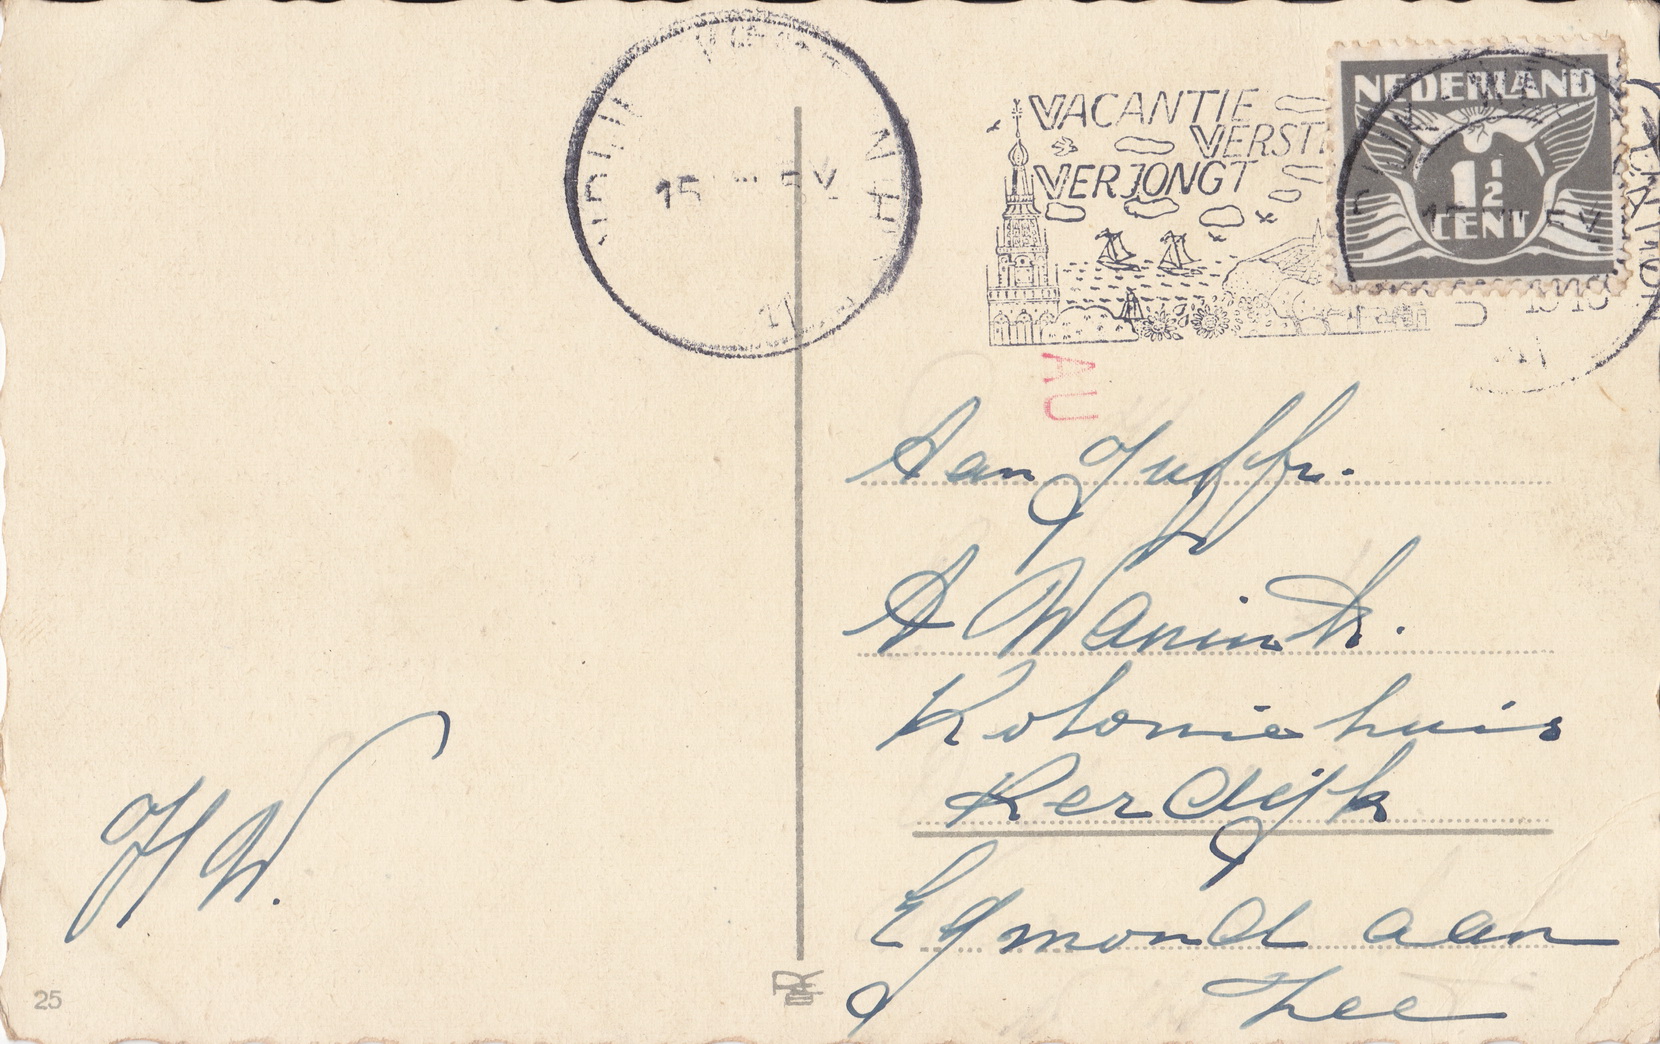 VACANTIE
VERST
VERJONGT
NEDERLAND
1½
CENT
AU
Aan Juffr.
A Wanink.
Koloniehuis
Kerdijk
Egmond aan
Zee
H W.
25